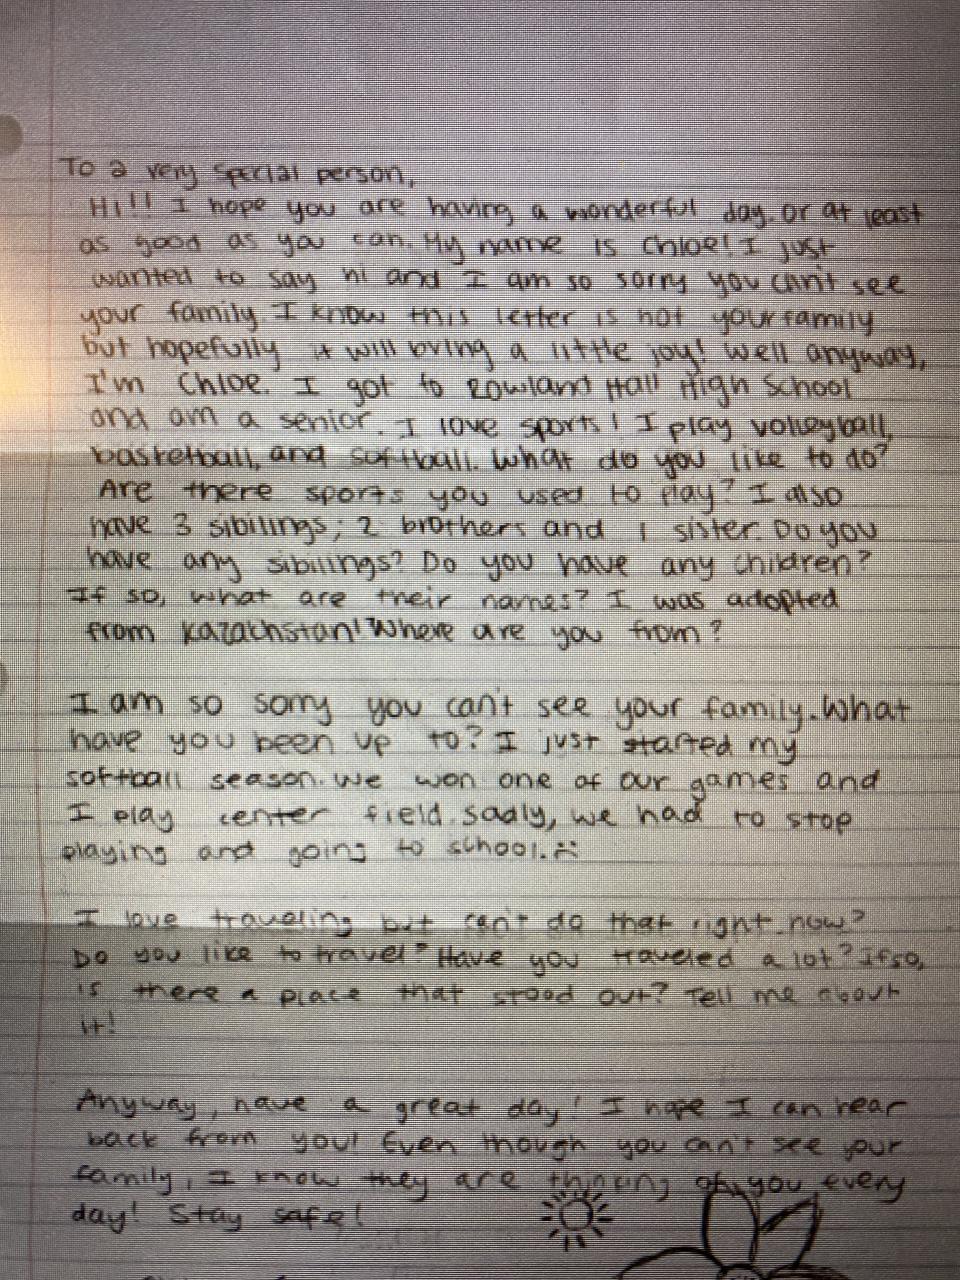 To a very special person,
Hi!! I hope you are having a wonderful day. or at least
as good as you can. My name is Chloe! I just
wanted to say hi and I am so sorry you can't see
your family. I know this letter is not your family
but hopefully it will bring a little joy! Well anyway,
I'm Chloe. I got to Rowland Hall High School
and am a senior. I love sports! I play volleyball,
basketball, and softball. What do you like to do?
Are there sports you used to play? I also
have 3 sibilings; 2 brothers and 1 sister. Do you
have any sibilings? Do you have any children?
If so, what are their names? I was adopted
from Kazachstan! Where are you from?
I am so sorry you can't see your family. What
have you been up to? I just started my
softball season. We won one of our games and
I play center field. sadly, we had to stop
playing and going to school. :(
I love traveling but can't do that right now?
Do you like to travel? Have you traveled a lot? If so,
is there a place that stood out? Tell me about
it!
Anyway, have a great day! I hope I can hear
back from you! Even though you can't see your
family, I know they are thinking of you every
day! Stay safe!